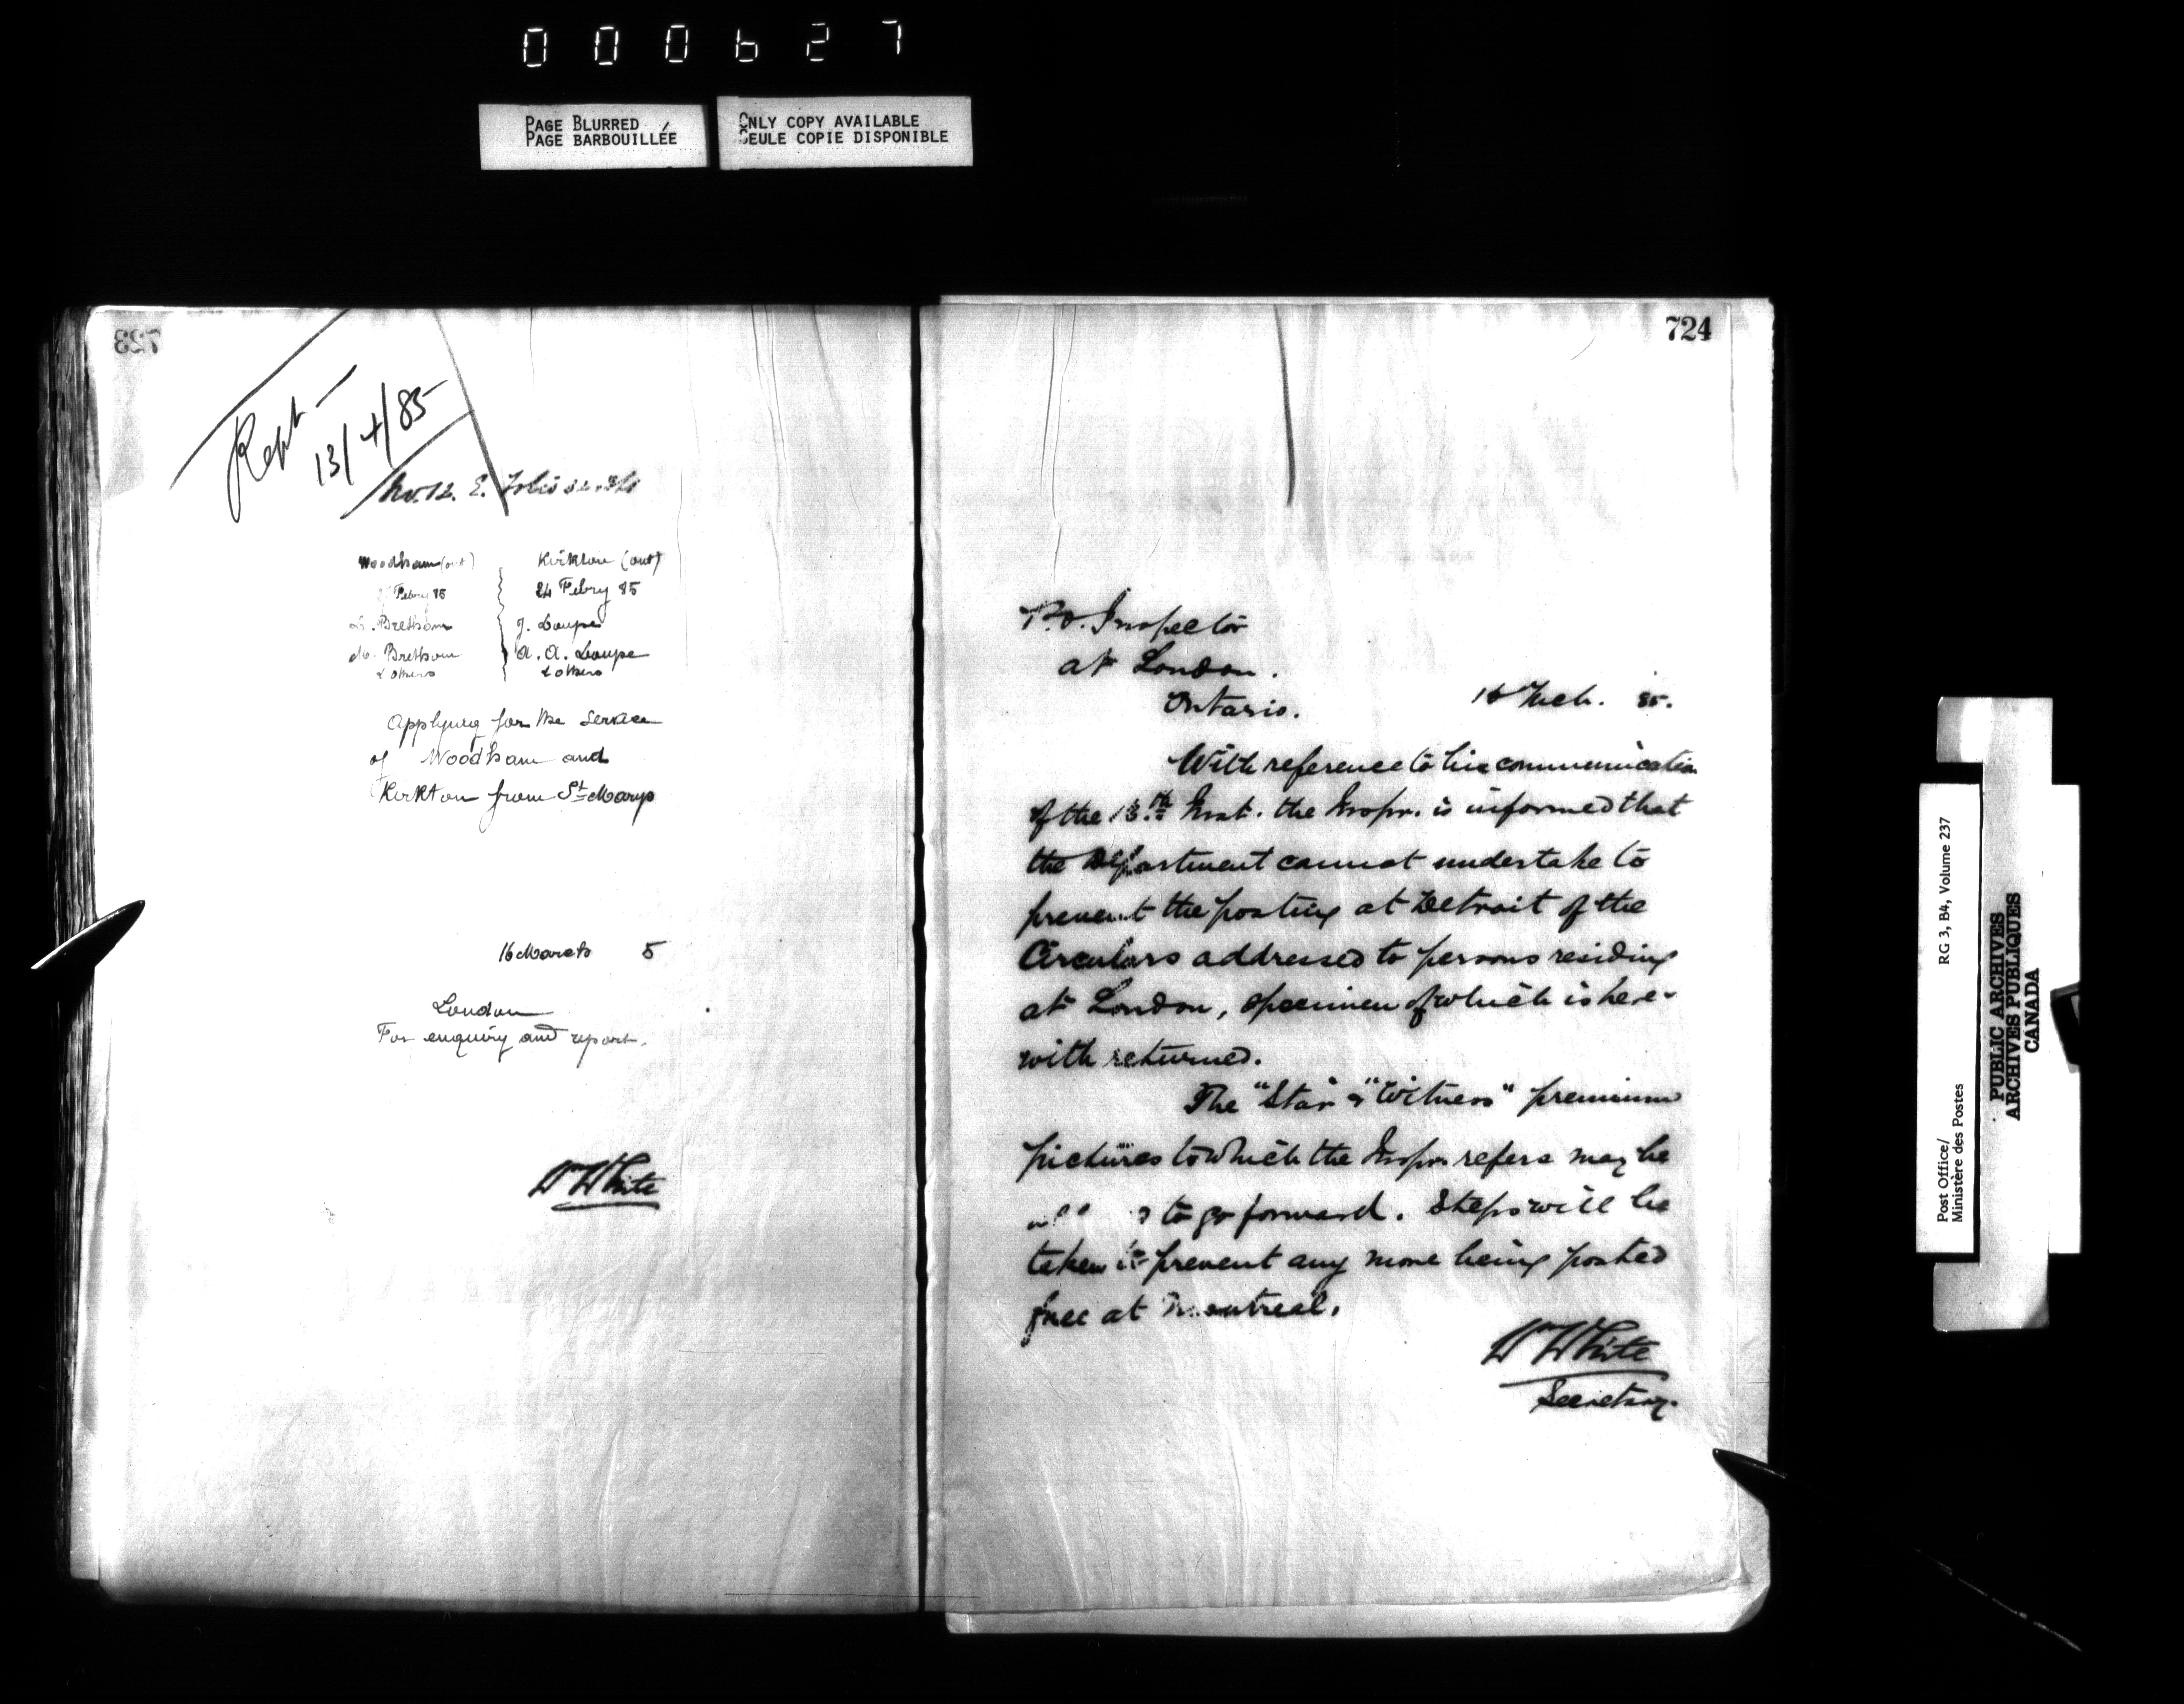 000627
PAGE BLURRED
PAGE BARBOUILLÉE
ONLY COPY AVAILABLE
SEULE COPIE DISPONIBLE
723
Rept
13/4/85
Woodham (ont)
Kirkton (ont)
Febry 85
24 Febry 85
Bretham
J. Doupe
Bretham
A. A. Doupe
& others
& others
Applying for the Service
of Woodham and
Kirkton from St Marys
16 March 5
London
For enquiry and report.
W White
724
P.O. Inspector
at London.
Ontario.
16 Mch. 85.
With reference to his communication
of the 13th Inst. the Inspr. is informed that
the Department cannot undertake to
prevent the posting at Detroit of the
Circulars addressed to persons residing
at London, specimen of which is here-
with returned.
The "Star" & "Witness" premium
pictures to which the Inspr. refers may be
to go forward. Steps will be
taken to prevent any more being posted
free at Montreal.
W White
Secretary.
RG 3, B4, Volume 237
Post Office/
Ministère des Postes
PUBLIC ARCHIVES
ARCHIVES PUBLIQUES
CANADA